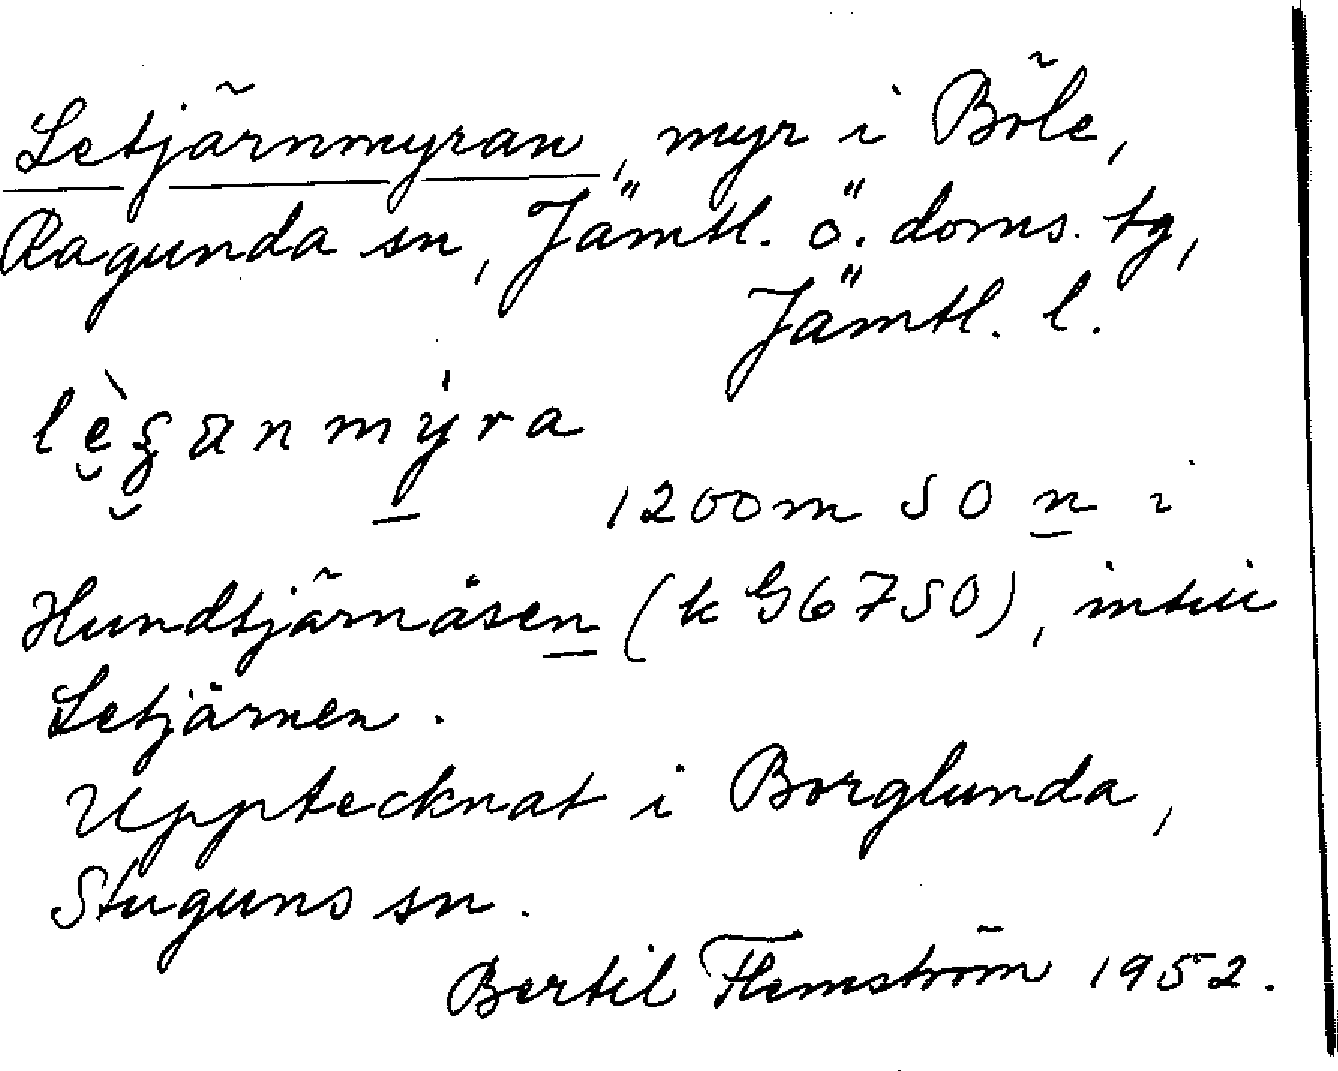 Letjärnmyran, myr i Böle,
Ragunda sn, Jämtl. ö. doms. tg,
Jämtl. l.
1200m SO n i
Hundtjärnåsen (k G6750), intill
Letjärnen.
Upptecknat i Borglunda,
Stuguns sn.
Bertil Flemström 1952.